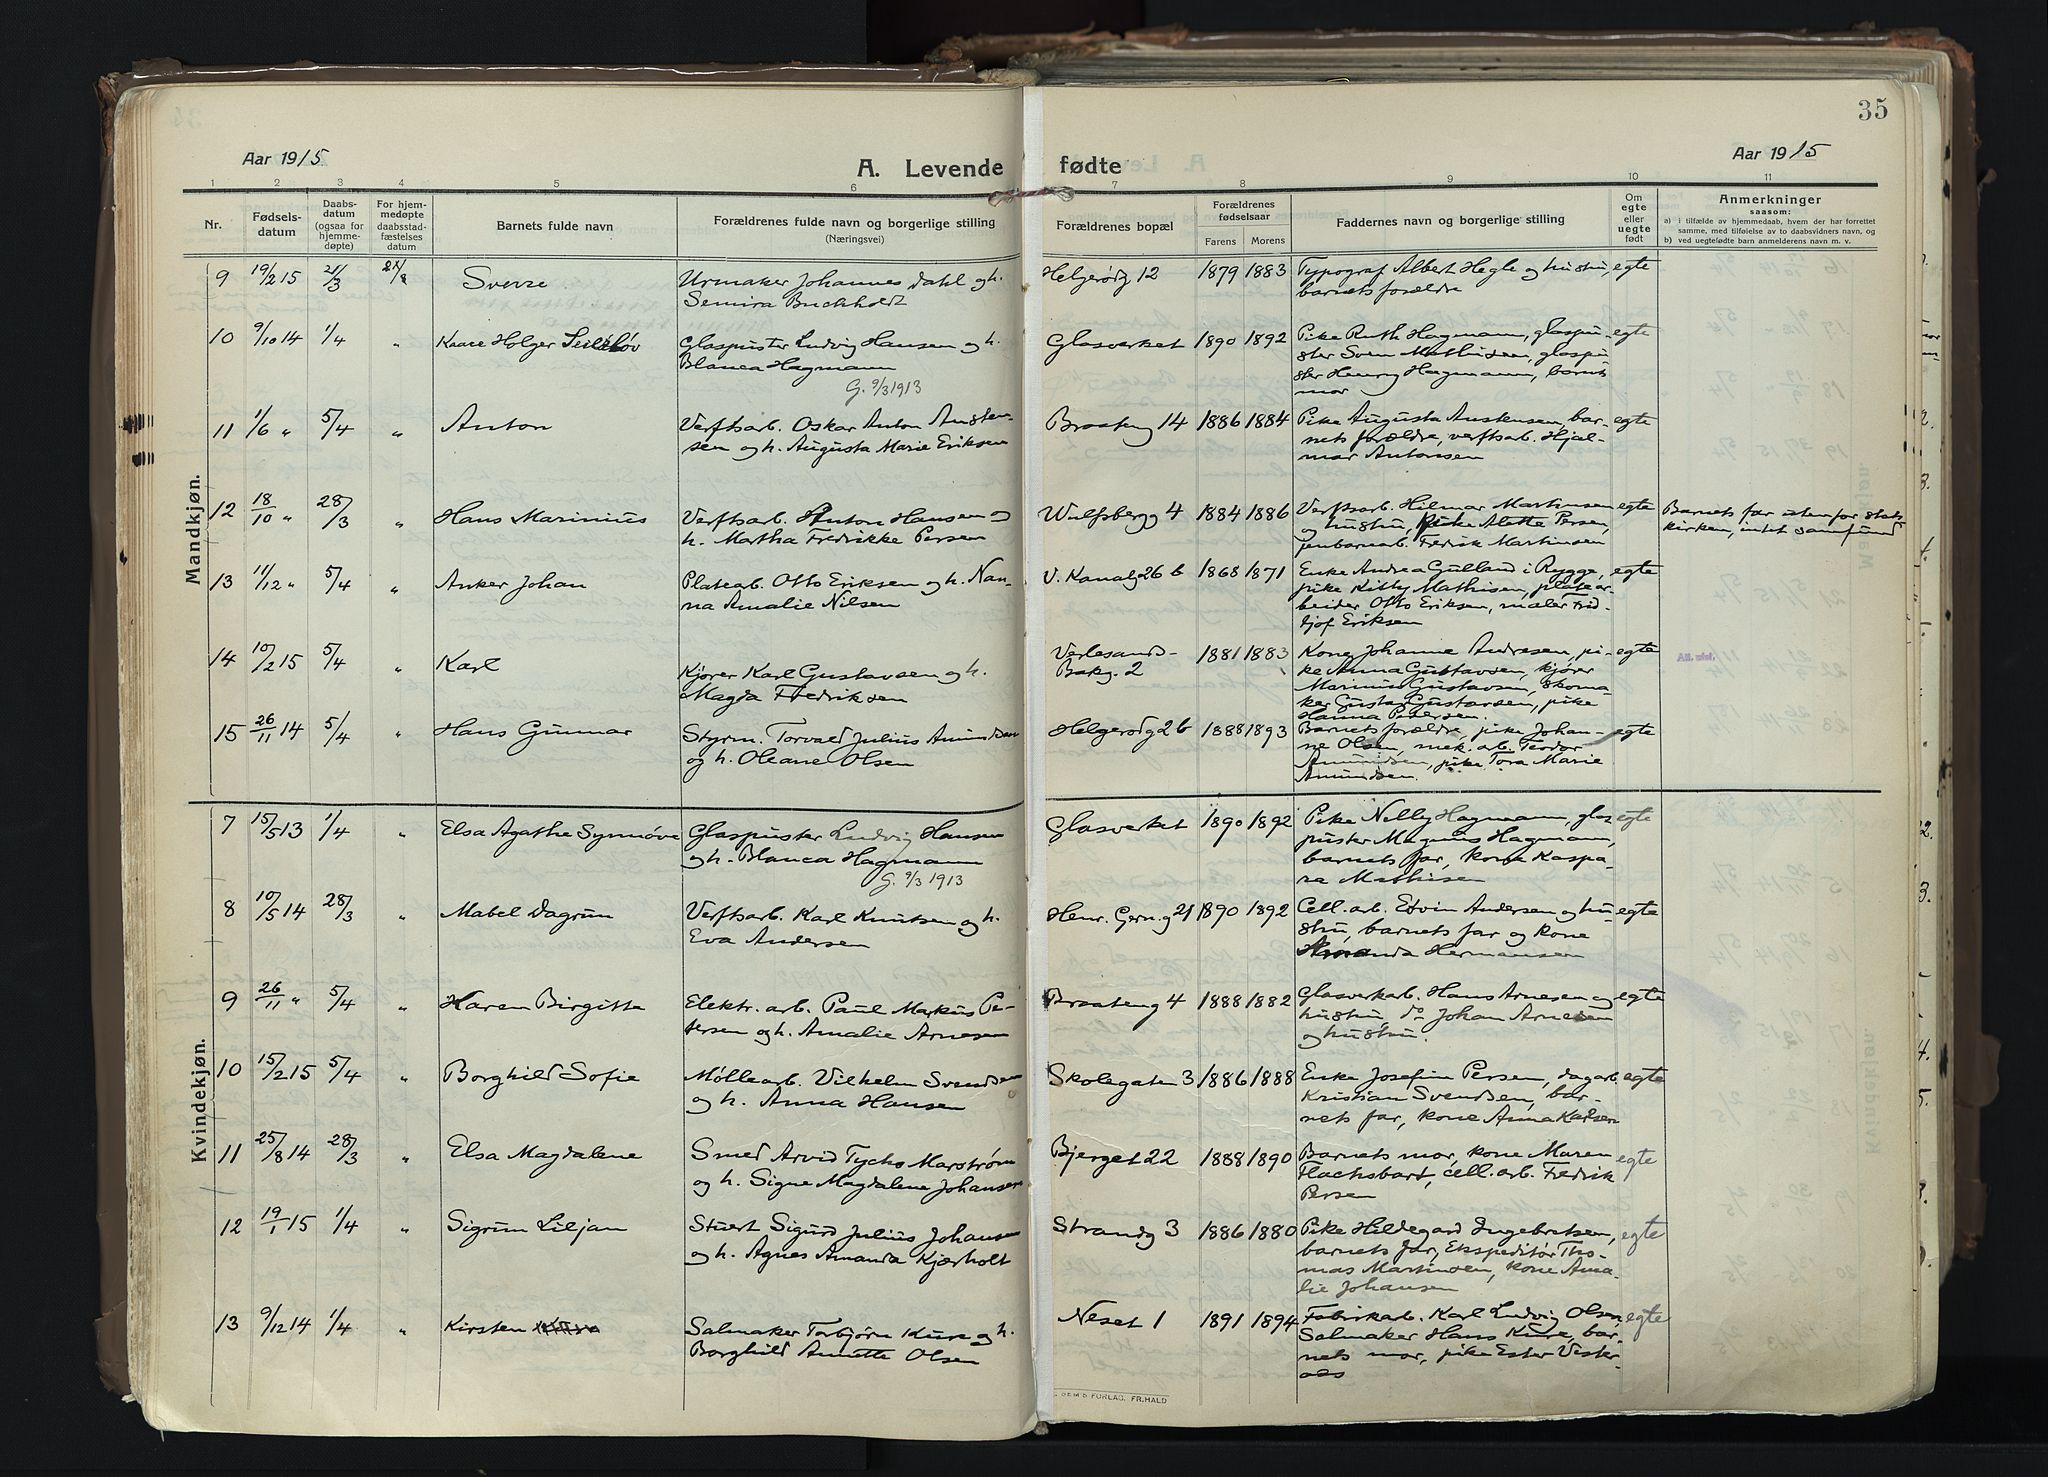 35
Aar 1915
A. Levende fødte
Aar 1915
1 2 3 4 5 6 7 8 9 10 11
Nr.
Fødsels-
datum
Daabs-
datum
(ogsaa for
hjemme-
døpte)
For hjem-
medøpte
daabsstad-
fæstelses
datum
Barnets fulde navn
Forældrenes fulde navn og borgerlige stilling
(Næringsvei)
Forældrenes bopæl
Forældrenes
fødselsaar
Farens Morens
Faddernes navn og borgerlige stilling
Om
egte
eller
uegte
født
Anmerkninger
saasom:
a) i tilfælde av hjemmedaab, hvem der har forrettet
samme, med tilføielse av to daabsvidners navn, og
b) ved uegtefødte barn anmelderens navn m. v.
Mandkjøn.
9 19/2 15 21/3 Sverre Urmaker Johannes Dahl og h. Helgerødg 12 1879 1883 Typograf Albert Hegle og hustru, egte
Semira Buchholdt barnets forældre
10 9/10 14 1/4 " Kaare Holger Glaspuster Ludvig Hansen og h. Glasverket 1890 1892 Pike Ruth Hagmann, glaspu- egte
Blanca Hagmann ster Sven Mathisen, glaspu-
G. 9/3 1913 ster Henry Hagmann, barnets
mor
11 1/6 " 5/4 " Anton Verftsarb. Oskar Anton Austen- Braateng 14 1886 1884 Pike Augusta Austensen, bar- egte
sen og h. Augusta Marie Eriksen nets forældre, verftsarb. Hjal-
mar Antonsen
12 18/10 " 28/3 " Hans Marinius Verftsarb. Anton Hansen og Wulfsbergg 4 1884 1886 Verftsarb. Hilmar Martinsen egte Barnets far utenfor stats
h. Martha Fredrikke Persen og hustru, Pike Alette Persen, kirken, intet samfund
jernbanearb. Fredrik Martinsen
13 11/12 " 5/4 " Anker Johan Platearb. Otto Eriksen og h. Nan- V. Kanalg 26 b 1868 1871 Enke Andrea Gulland i Rygge, egte
na Amalie Nilsen pike Kitty Mathisen, platear-
beider Otto Eriksen, maler Frid-
tjof Eriksen
14 10/2 15 5/4 " Karl Kjører Karl Gustavsen og h. Verlesand- 1881 1883 Kone Johanne Andresen, pi- egte Att. utst.
Magda Fredriksen Bakg. 2 ke Anna Gustavsen, kjører
Marinius Gustavsen, skoma-
ker Gustav Gustavsen, pike
Hanna Petersen.
15 26/11 14 5/4 " Hans Gunnar Styrm. Torvald Julius Amundsen Helgerødg 2 b 1888 1893 Barnets forældre, pike Johan- egte
og h. Oleane Olsen ne Olsen, mek. arb. Teodor
Amundsen, pike Tora Marie
Amundsen.
Kvindekjøn.
7 15/5 13 1/4 " Elsa Agathe Synnøve Glaspuster Ludvig Hansen Glasverket 1890 1892 Pike Nelly Hagmann, glas egte
og h. Blanca Hagmann puster Magnus Hagmann,
G. 9/3 1913 barnets far, kone Kaspa-
ra Mathisen
8 10/5 14 28/3 " Mabel Dagrun Verftsarb. Karl Knutsen og h. Henr. Gern. g 21 1890 1892 Cell. arb. Edvin Andersen og hu- egte
Eva Andersen stru, barnets far og kone
Amanda Hermansen
9 26/11 " 5/4 " Karen Birgitte Elektr. arb. Paul Markus Pe- Braateng 4 1888 1882 Glasverkarb. Hans Arnesen og egte
tersen og h. Amalie Arnesen hustru, do Johan Arnesen
og hustru.
10 15/2 15 5/4 " Borghild Sofie Møllearb. Vilhelm Svendsen Skolegaten 3 1886 1888 Enke Josefine Persen, dagarb. egte
og h. Anna Hansen Kristian Svendsen, bar-
nets far, kone Anna Karlsen
11 25/8 14 28/3 " Elsa Magdalene Smed Arvid Tycho Marstrøm Bjerget 22 1888 1890 Barnets mor, kone Maren egte
og h. Signe Magdalene Johansen Flachsbart, cell. arb. Fredrik
Persen
12 19/1 15 1/4 " Sigrun Liljan Stuert Sigurd Julius Johansen Strandg 3 1886 1880 Pike Hildegard Ingebretsen, egte
og h. Agnes Amanda Kjærholt barnets far, Ekspeditør Tho-
mas Martinsen, kone Ama-
lie Johansen
13 9/12 14 1/4 " Kirsten Salmaker Torbjørn Kure og h. Neset 1 1891 1894 Fabrikarb. Karl Ludvig Olsen, egte
Borghild Annette Olsen Salmaker Hans Kure, bar-
nets mor, pike Ester Vester-
aas
SEM'S FORLAG, FR.HALD